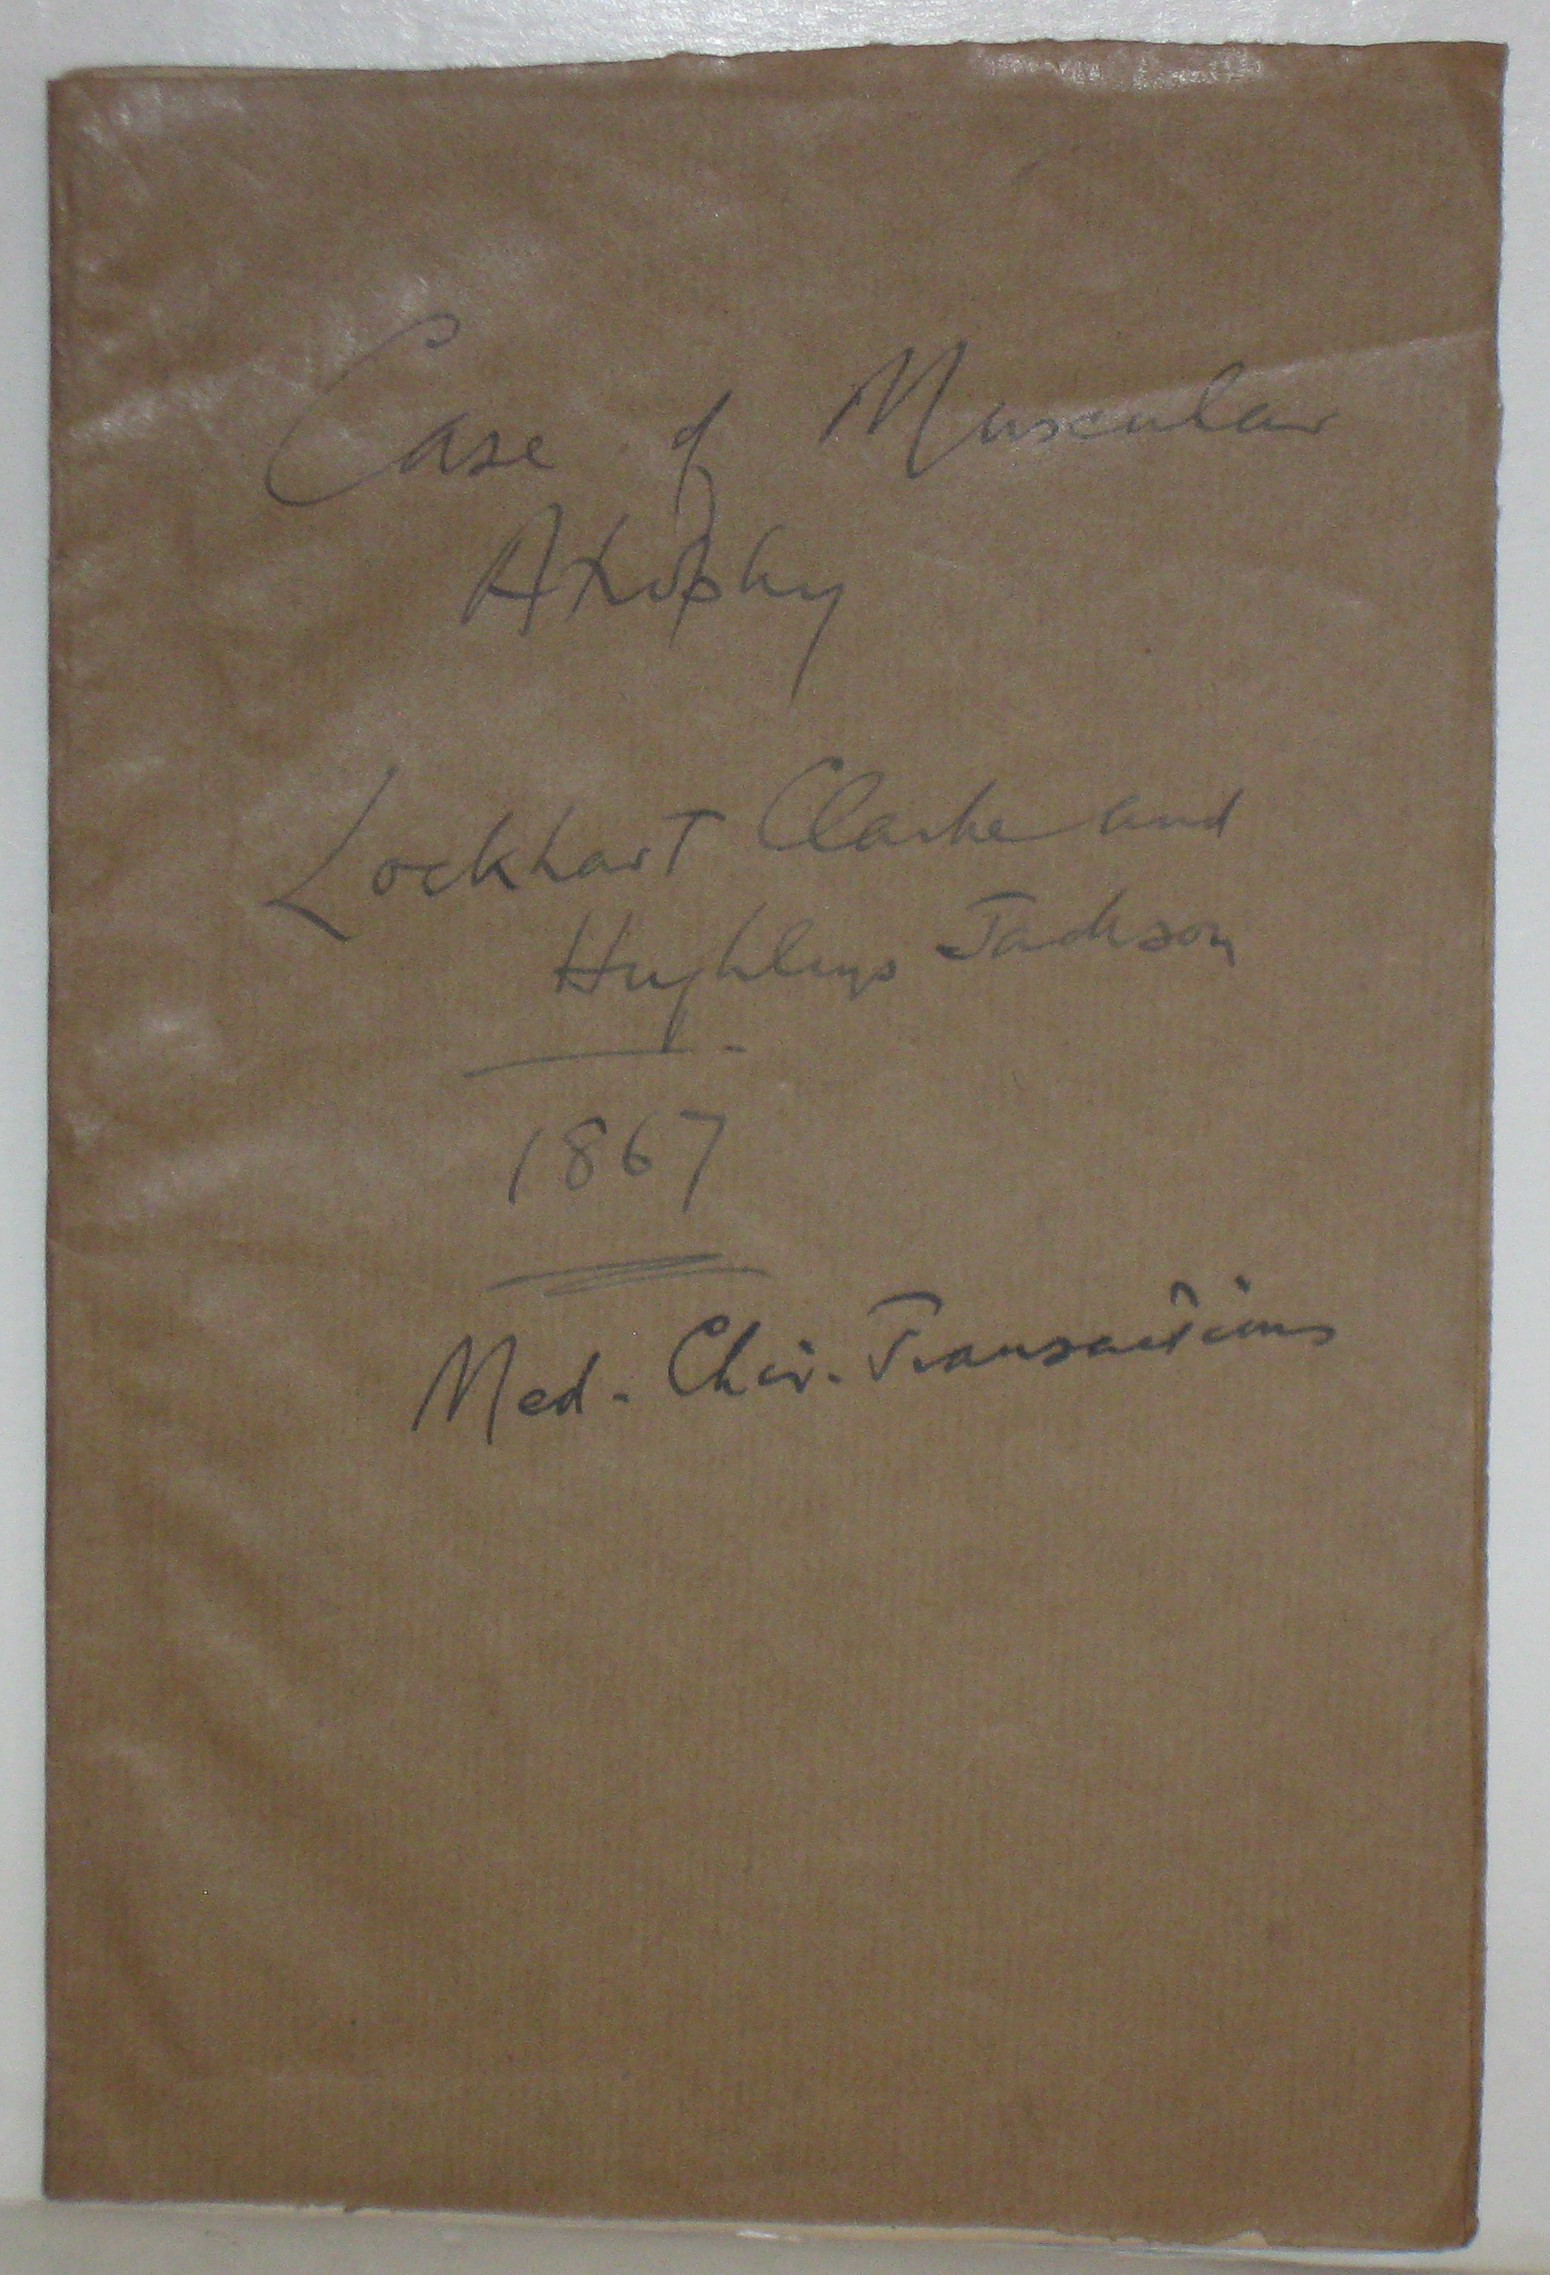 Case of Muscular
Atrophy
Lockhart Clarke and
Hughlings Jackson
1867
Med. Chir. Transactions